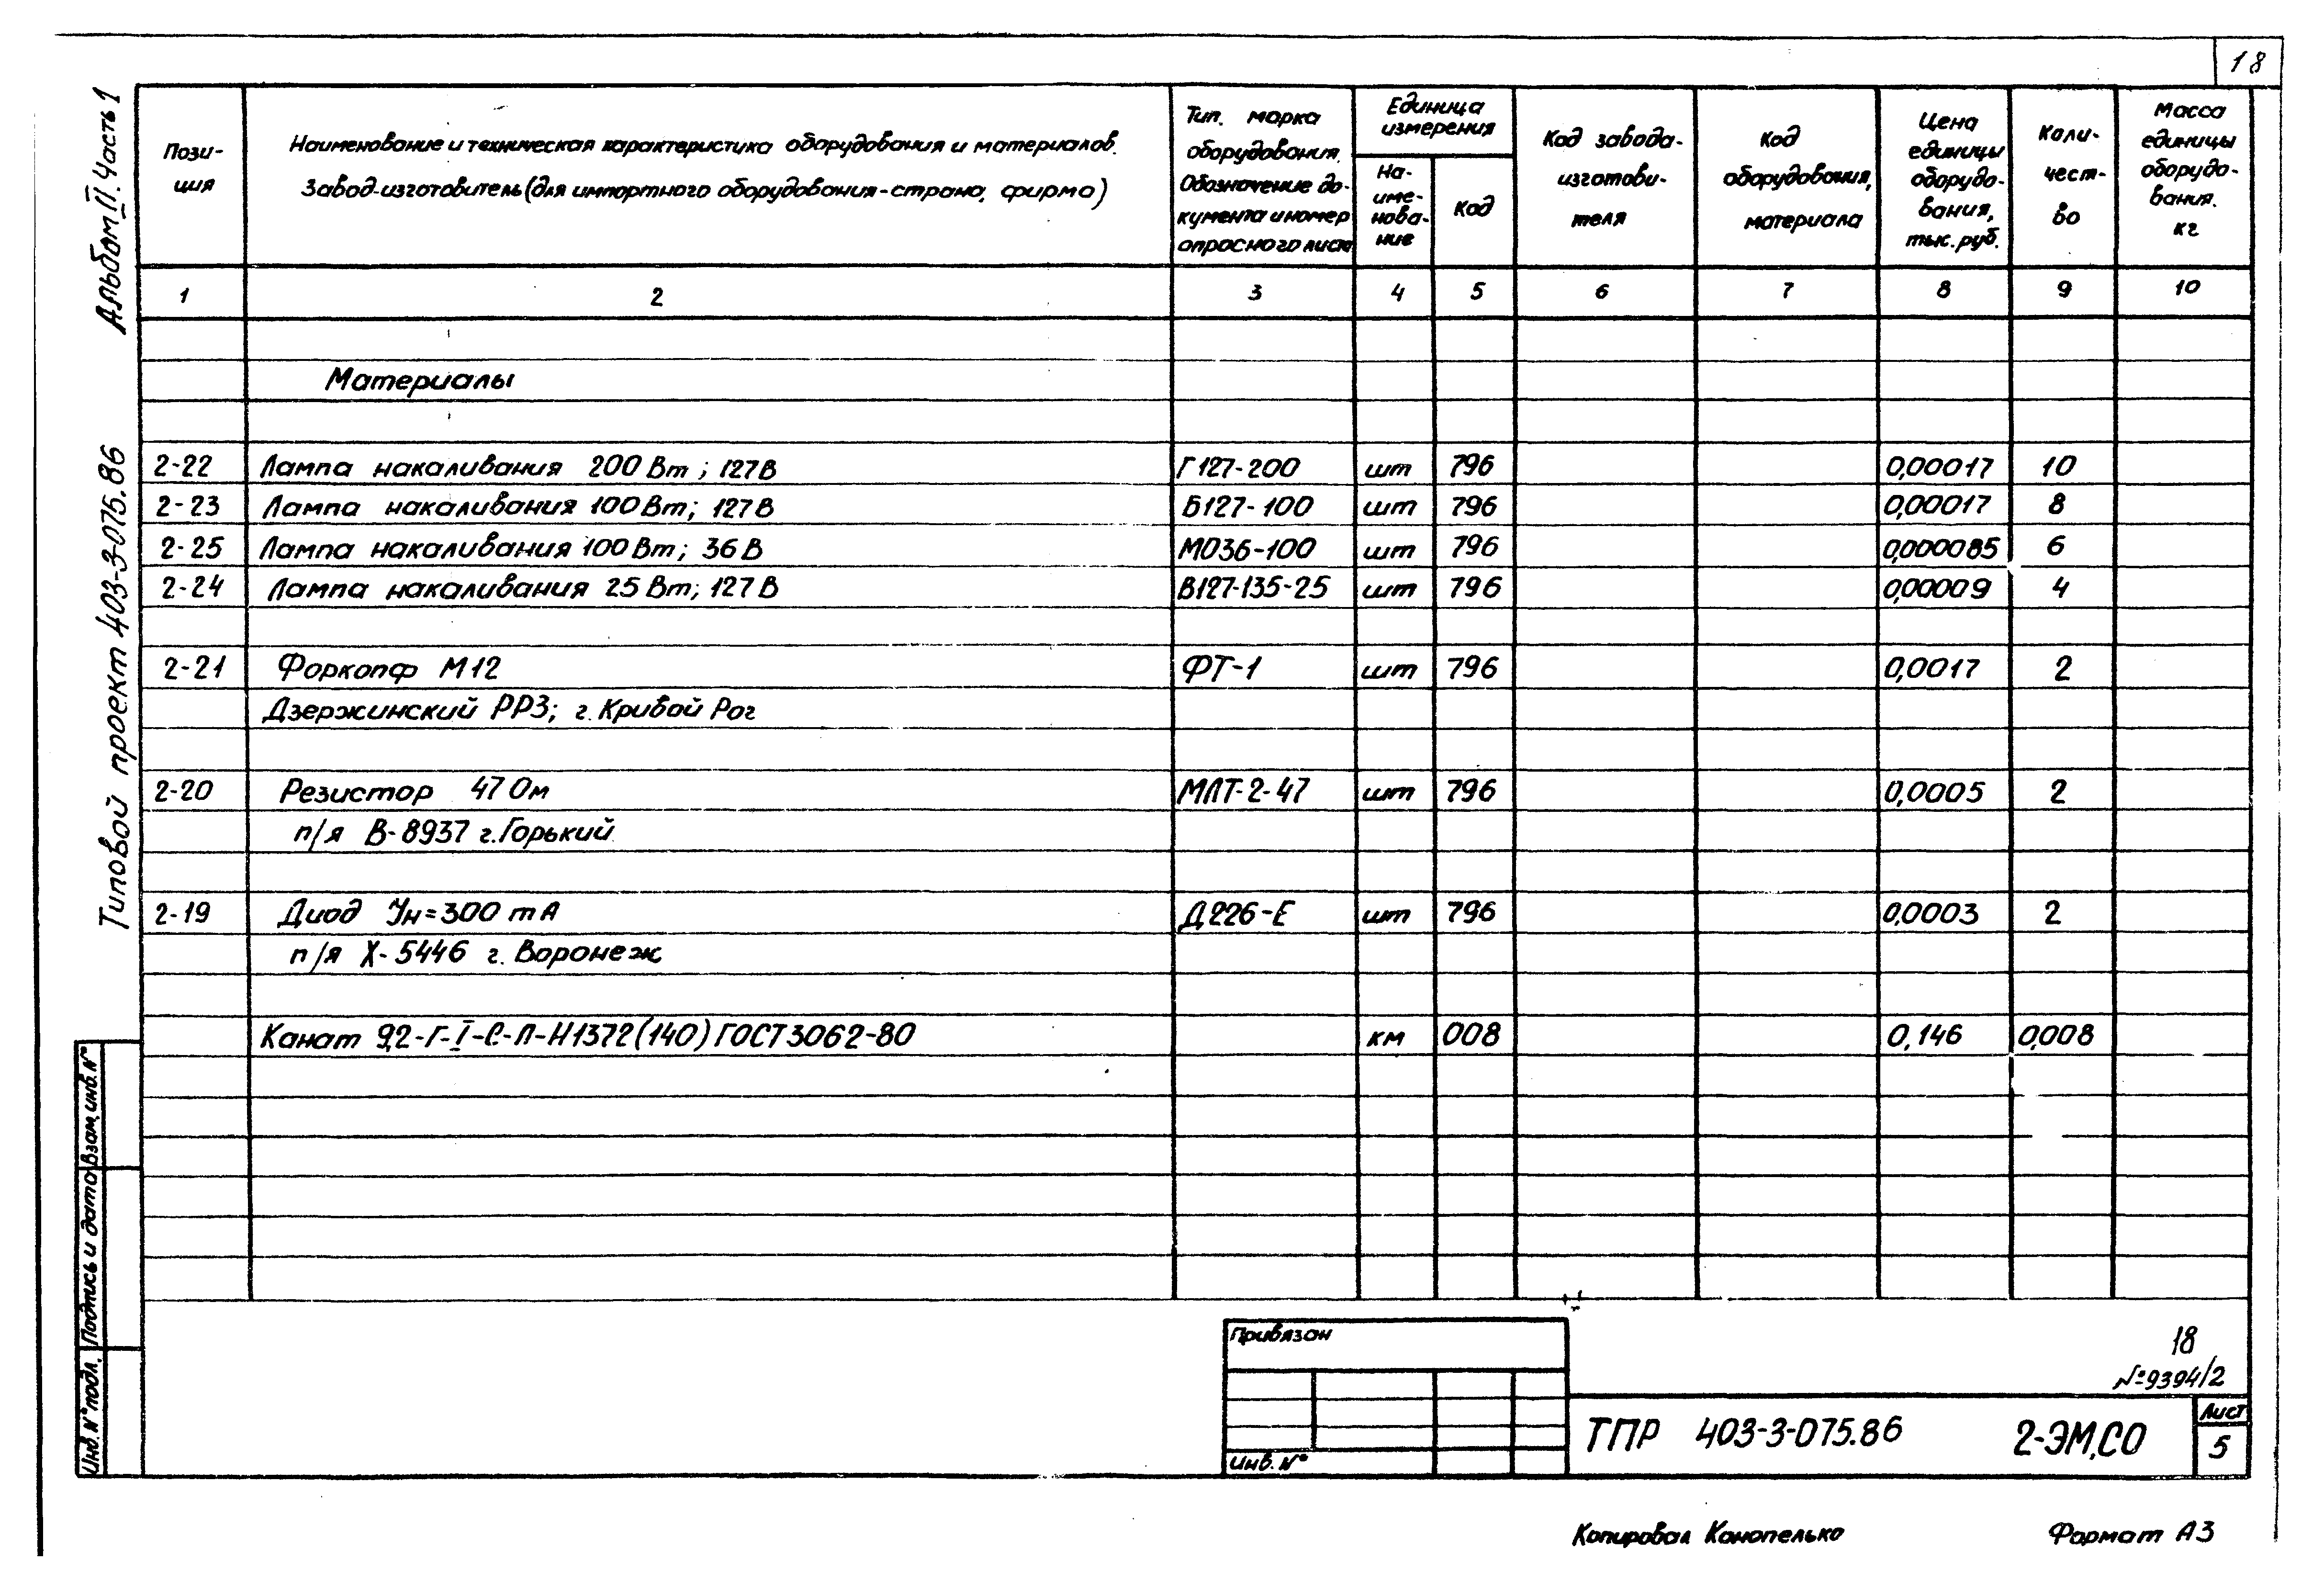 18
Альбом II. Часть 1
Типовой проект 403-3-075.86
Пози-
ция
Наименование и техническая характеристика оборудования и материалов.
Завод-изготовитель (для импортного оборудования - страна, фирма)
Тип. марка
оборудования.
Обозначение до-
кумента и номер
опросного листа
Единица
измерения
На-
име-
нова-
ние
Код
Код завода-
изготови-
теля
Код
оборудования,
материала
Цена
единицы
оборудо-
вания,
тыс. руб.
Коли-
чест-
во
Масса
единицы
оборудо-
вания.
кг
1 2 3 4 5 6 7 8 9 10
Материалы
2-22 Лампа накаливания 200 Вт; 127 В Г127-200 шт 796 0,00017 10
2-23 Лампа накаливания 100 Вт; 127 В Б127-100 шт 796 0,00017 8
2-25 Лампа накаливания 100 Вт; 36 В МО36-100 шт 796 0,000085 6
2-24 Лампа накаливания 25 Вт; 127 В В127-135-25 шт 796 0,00009 4
2-21 Форкопф М12 ФТ-1 шт 796 0,0017 2
Дзержинский РРЗ; г. Кривой Рог
2-20 Резистор 47 Ом МЛТ-2-47 шт 796 0,0005 2
п/я В-8937 г. Горький
2-19 Диод Ун=300 mA Д226-Е шт 796 0,0003 2
п/я Х-5446 г. Воронеж
Канат 9,2-Г-I-С-Л-Н1372(140) ГОСТ 3062-80 км 008 0,146 0,008
Взам. инв. №
Подпись и дата
Инв. № подл.
Привязан
Инв. №
18
№9394/2
ТПР 403-3-075.86 2-ЭМ,СО
Лист
5
Копировал Конопелько Формат А3